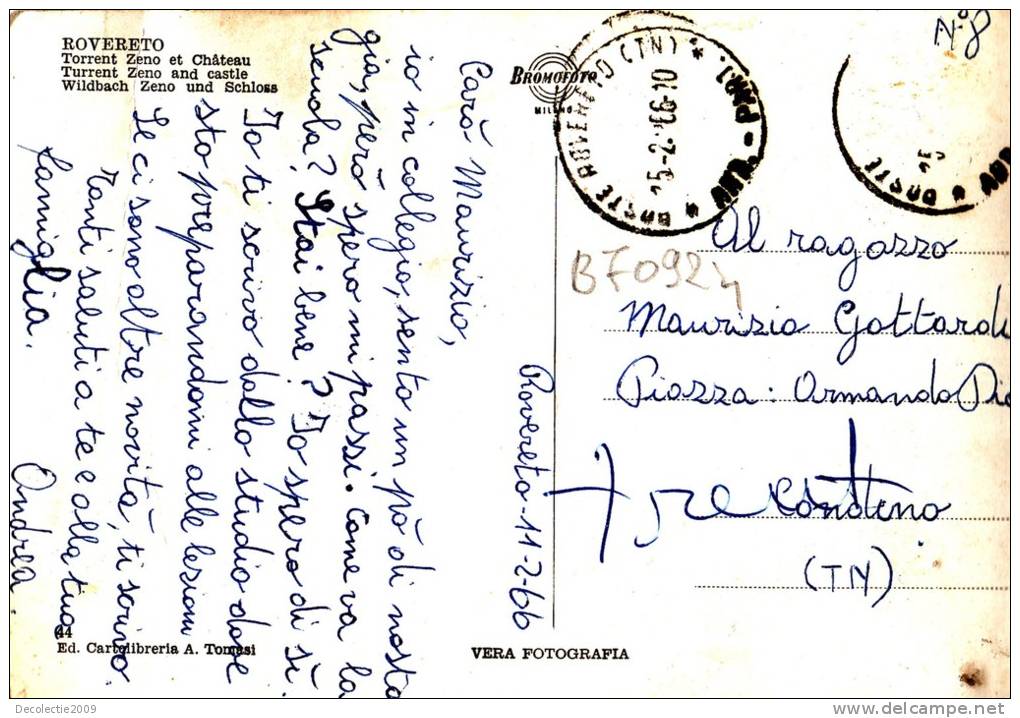 ROVERETO
Torrent Zeno et Château
Turrent Zeno and castle
Wildbach Zeno und Schloss
BROMOFOTO
MILANO
POSTE ROVERETO (TN) * ARR. - PAR.
15-2-66-10
POSTE
15
N°8
BF0924
Rovereto-11-2-66
Caro Maurizio,
io in collegio, sento un pò di nostal
gia, però spero mi passi. Come va la
scuola? Stai bene? Io spero di sì.
Io ti scrivo dallo studio dove
sto preparandomi alle lezioni
Se ci sono altre novità, ti scrivo.
Tanti saluti a te e alla tua
famiglia.
Andrea.
Al ragazzo
Maurizio Gottardi
Piazza: Armando Dia
Condino
(TN)
44
Ed. Cartolibreria A. Tomasi
VERA FOTOGRAFIA
Decolectie2009
www.delcampe.net